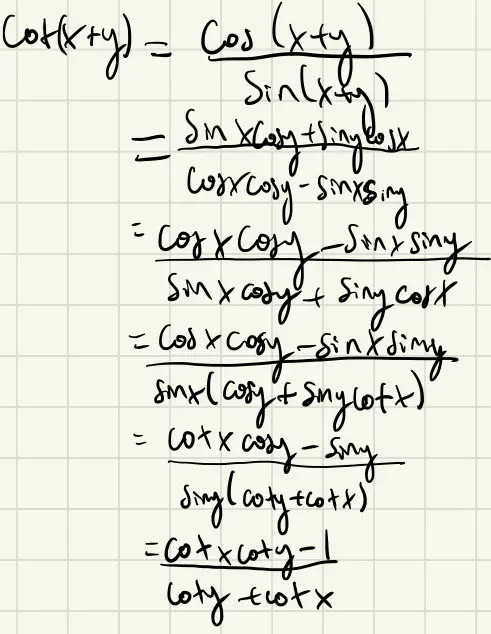 Cot(x+y) = Cos (x+y) / Sin(x+y)
= Sin x cosy + siny cosx / cosx cosy - sinx siny
= cosx cosy - sinx siny / sin x cosy + siny cosx
= cosx cosy - sinx siny / sinx(cosy + siny cotx)
= cotx cosy - siny / siny(coty+cotx)
= cotx coty - 1 / coty + cotx